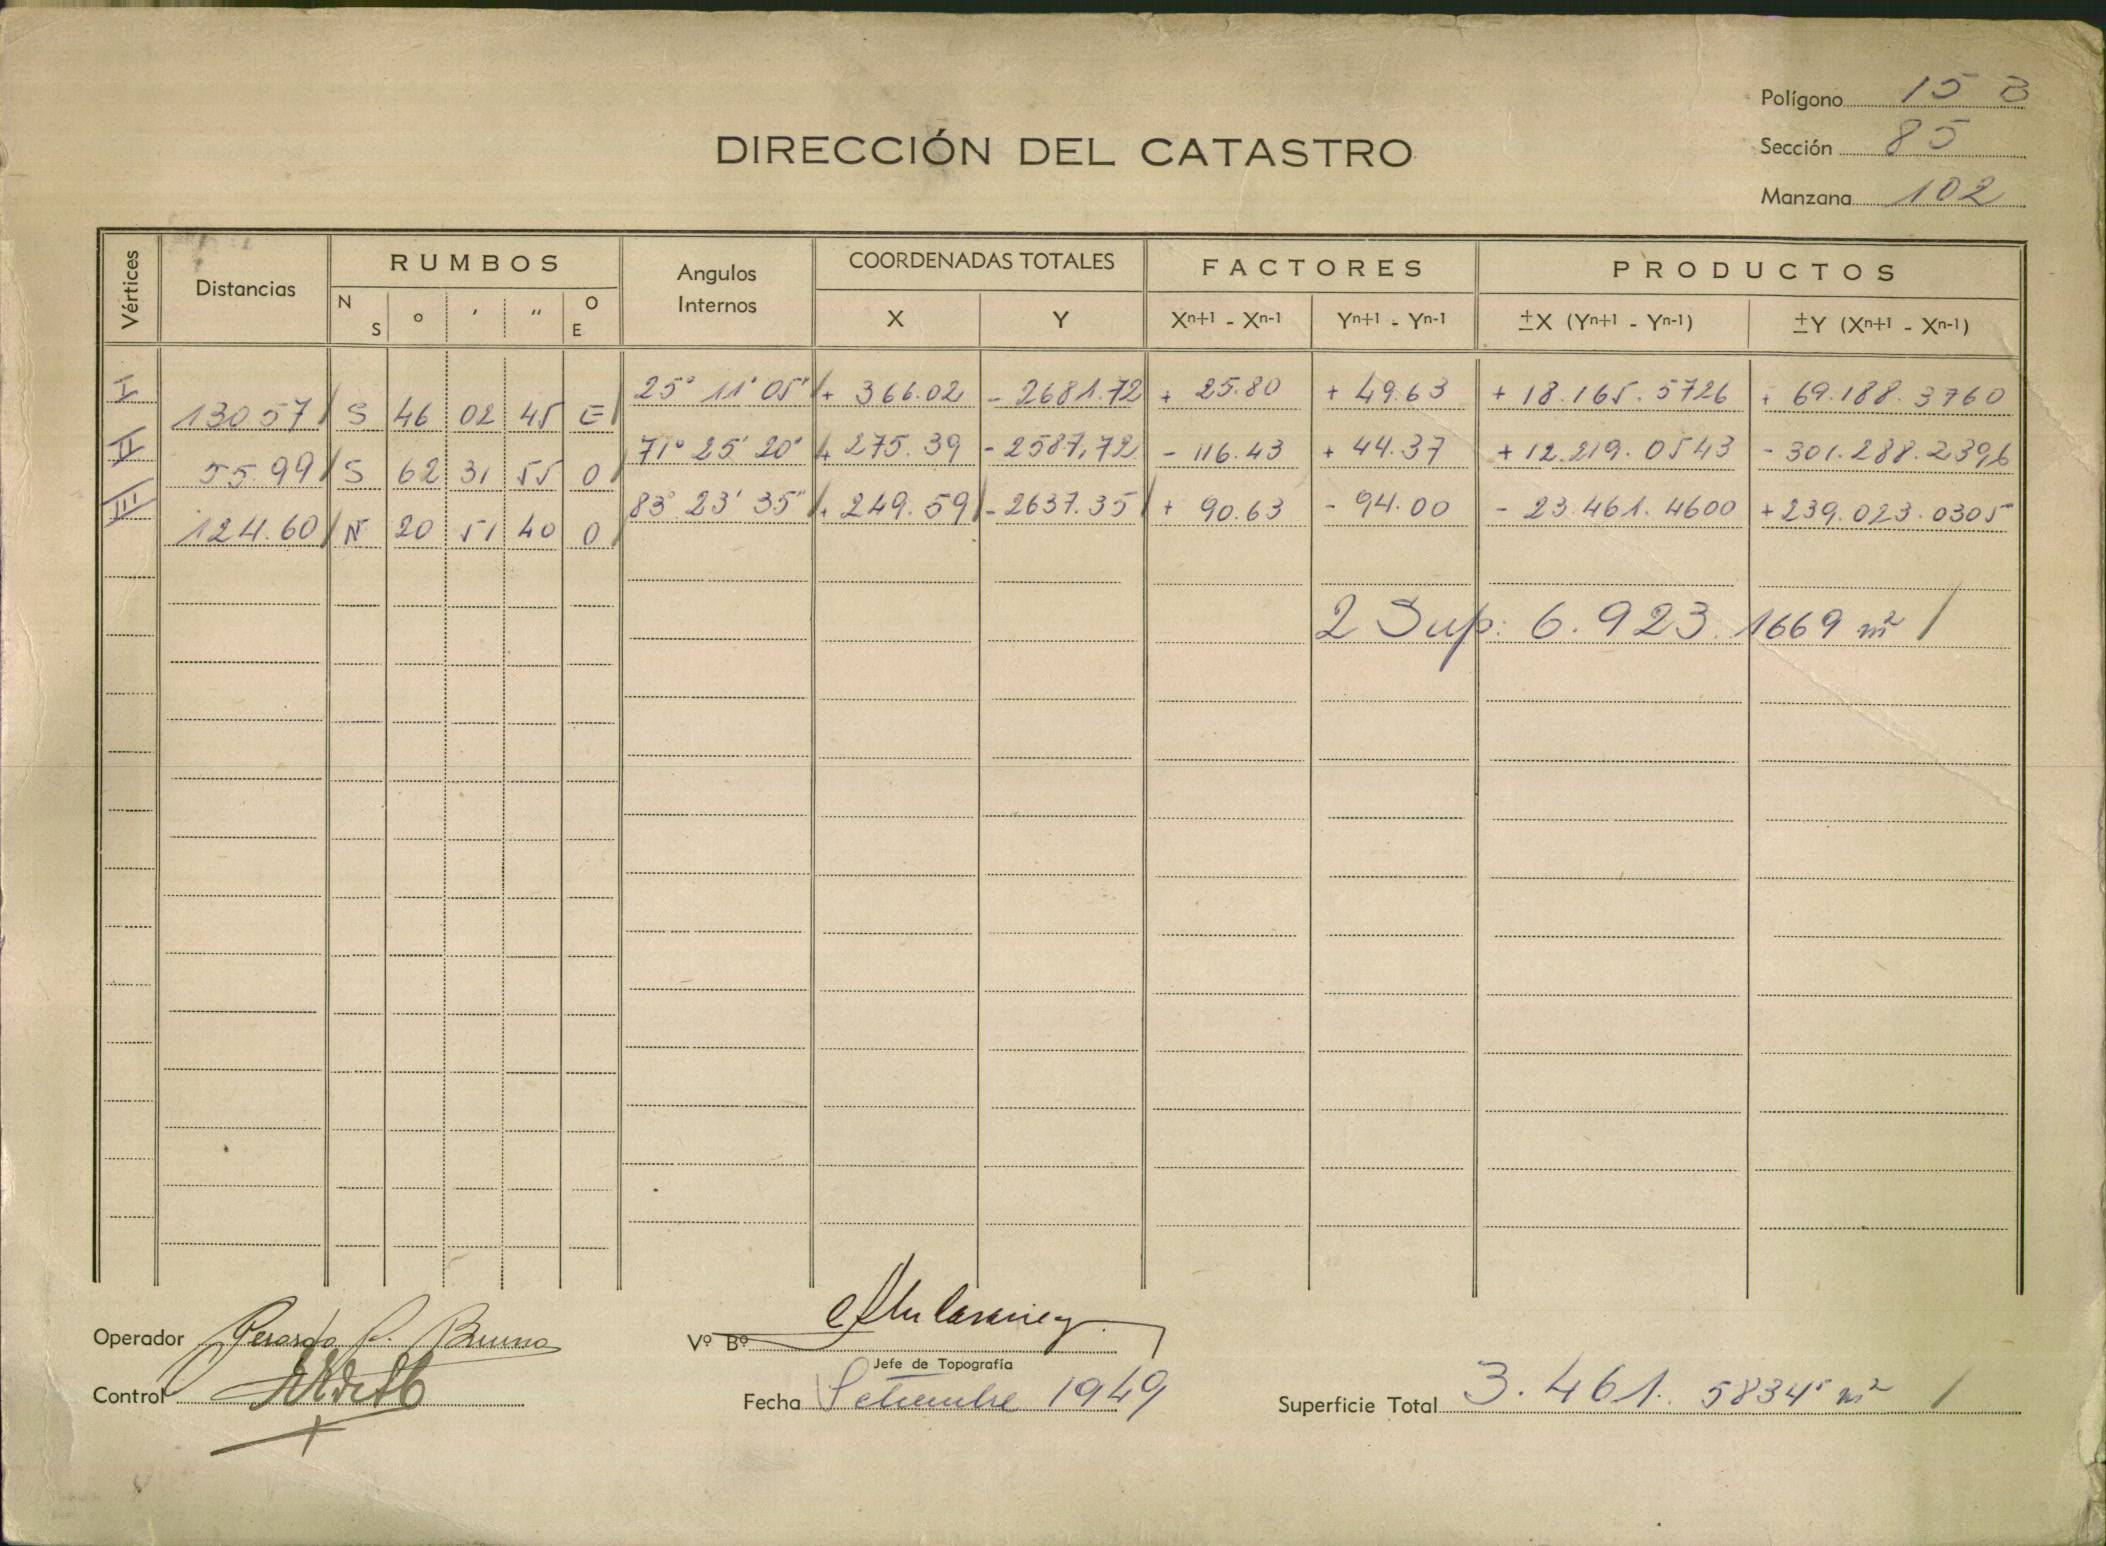 Polígono 15 B
Sección 85
Manzana 102
DIRECCIÓN DEL CATASTRO
Vértices Distancias RUMBOS Angulos Internos COORDENADAS TOTALES FACTORES PRODUCTOS
N S ° ' " O E X Y Xn+1 - Xn-1 Yn+1 - Yn-1 ±X (Yn+1 - Yn-1) ±Y (Xn+1 - Xn-1)
I 25° 11' 05" + 366.02 - 2681.72 + 25.80 + 49.63 + 18.165.5726 + 69.188.3760
130 57 S 46 02 45 E
II 71° 25' 20" + 275.39 - 2587,72 - 116.43 + 44.37 + 12.219.0543 - 301.288.2396
55.99 S 62 31 55 O
III 83° 23' 35" + 249.59 - 2637.35 + 90.63 - 94.00 - 23.461.4600 + 239.023.0305
124.60 N 20 51 40 O
2 Sup: 6.923.1669 m²
Operador Gerardo P. Bruno
Vº Bº
Jefe de Topografía
Control
Fecha Setiembre 1949
Superficie Total 3.461.5834⁵ m²